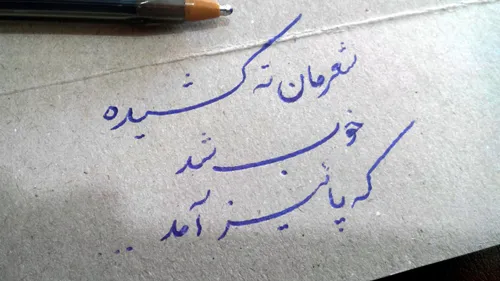 شعرمان ته کشیده
خوب شد
که پائیز آمد ...